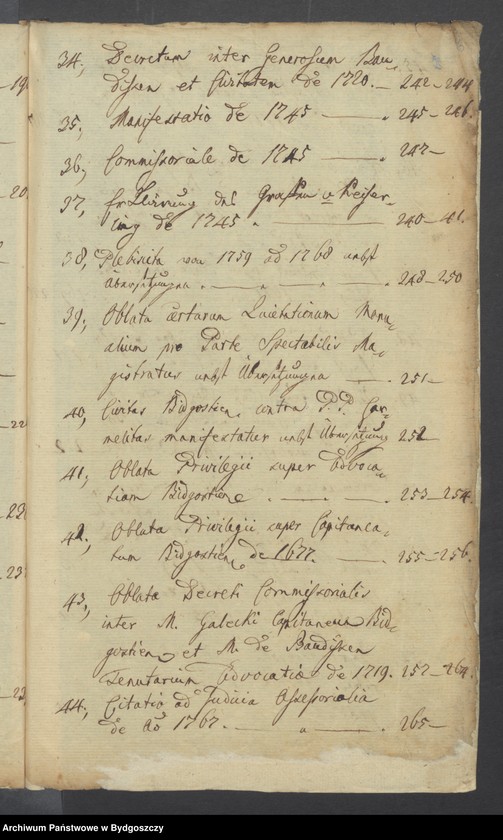 34, Decretum inter Generosum Bau-
dissen et Civitatem de 1720. — 242-244
35, Manifestatio de 1745 — 245-246.
36, Commissoriale de 1745 — 247-
37, Erklärung des Grafen v Keiser-
ling de 1745 — 240-41.
38, Plebiscita von 1759 ad 1768 nebst
Übersetzung — 248-250
39, Oblata certarum Quietationum Manu-
alium pro Parte Spectabilis Ma-
gistratus nebst Übersetzung — 251-
40, Civitas Bidgostien. contra P.P. Car-
melitas manifestatur nebst Übersetzung 252
41, Oblata Privilegii super Advoca-
tiam Bidgostien — 253-254.
42, Oblata Privilegii super Capitanea-
tum Bidgostien de 1677. — 255-256.
43, Oblata Decreti Commissorialis
inter M. Galecki Capitaneum Bid-
gostien et M. de Baudissen
Tenutarium Advocatiae de 1719. 257-264.
44, Citatio ad Judicia Assessorialia
de Ao 1767. — 265-
19
20
22
23
23
23
Archiwum Państwowe w Bydgoszczy